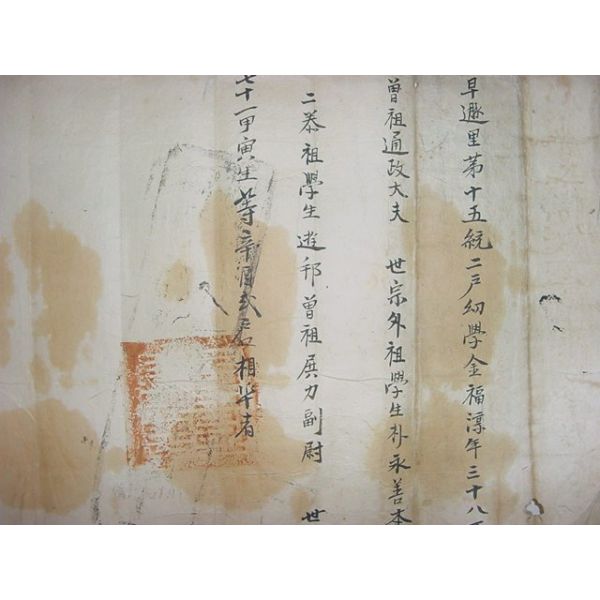 早遯里第十五統二戶幼學金福淳年三十八
曾祖通政大夫 世宗外祖學生朴永善本
二恭祖學生遊邦曾祖展力副尉 世
七十一甲寅生等辛酉式戶相準者